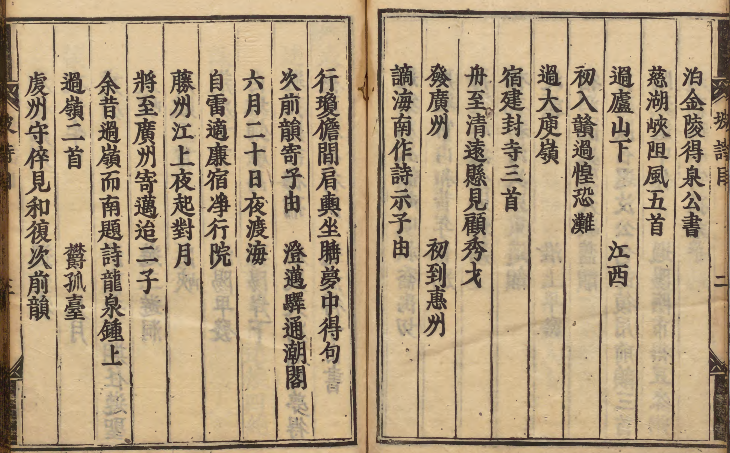 泊金陵得泉公書
慈湖峽阻風五首
過廬山下 江西
初入贛過惶恐灘
過大庾嶺
宿建封寺三首
舟至清遠縣見顧秀才
發廣州 初到惠州
謫海南作詩示子由
行瓊儋間肩輿坐睡夢中得句
次前韻寄子由 澄邁驛通潮閣
六月二十日夜渡海
自雷適廉宿凈行院
藤州江上夜起對月
將至廣州寄邁迨二子
余昔過嶺而南題詩龍泉鍾上
過嶺二首 欝孤臺
虔州守倅見和復次前韻
坡詩目
二